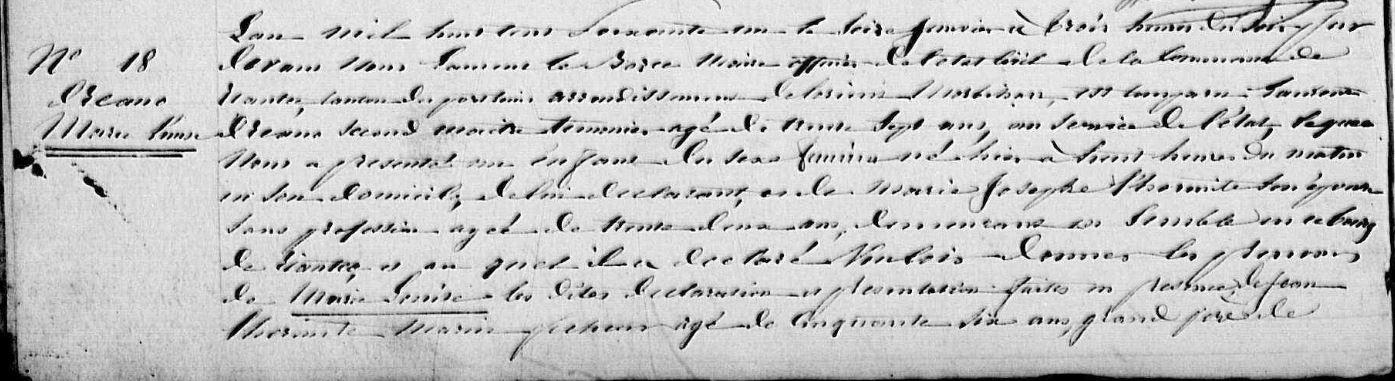 N° 18
Dréano
Marie Louise
L'an mil huit cent soixante un le seize janvier à trois heures du soir, par
devant Nous Laurent Le Maire officier de l'état civil de la Commune de
Riantec, canton du port louis arrondissement de lorient Morbihan, est comparu Laurent
Dréano second maître timonier agé de trente sept ans, au service de l'état, lequel
Nous a présenté un enfant du sexe féminin né hier à huit heures du matin
en son domicile, de lui déclarant, et de Marie Josephe Lhermite son épouse
sans profession agée de trente deux ans, demeurant ensemble en ce bourg
de Riantec, et au quel il a déclaré Vouloir donner les prénoms
de Marie Louise les dites déclaration et présentation faites en présence, de jean
Lhermite Marin pêcheur agé de cinquante six ans, grand père de